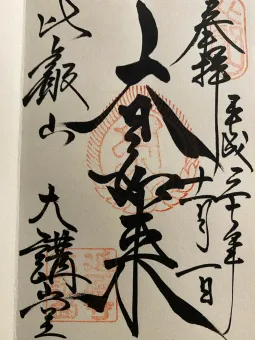 奉拝
平成三十年十一月一日
大日如来
比叡山
大講堂